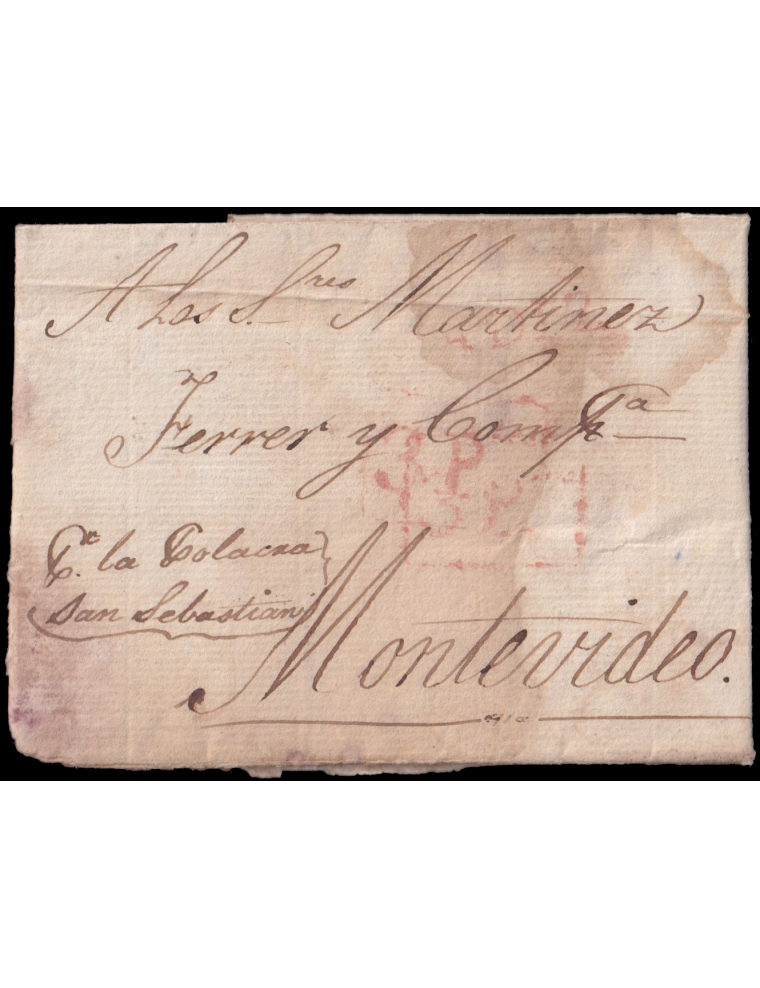 A Los S.res Martinez
Ferrer y Comp.a
P.r la Polacra
San Sebastian
Montevideo.